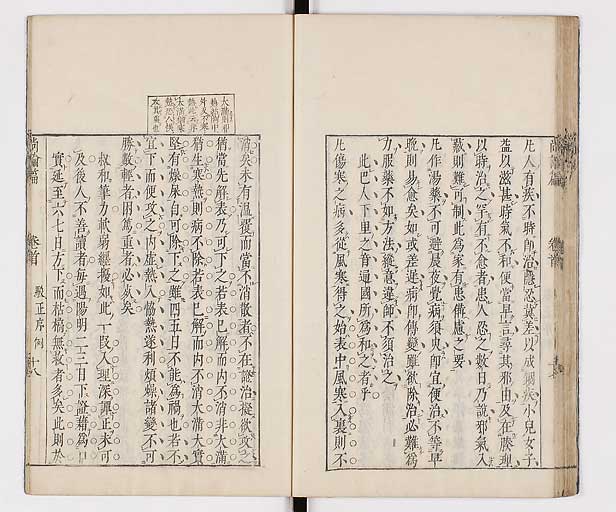 凡人有疾不時即治隱忍冀差以成痼疾小兒女子
益以滋甚時氣不和便當早言尋其邪由及在腠理
以時治之罕有不愈者患人忍之數日乃說邪氣入
藏則難可制此為家有患備慮之要
凡作湯藥不可避晨夜覺病須臾即宜便治不等早
晚則易愈矣如或差遲病即傳變雖欲除治必難為
力服藥不如方法縱意違師不須治之
此巴人下里之音通國所為和之者乎
凡傷寒之病多從風寒得之始表中風寒入裏則不
消矣未有溫覆而當不消散者不在證治擬欲攻之
猶當先解表乃可下之若表已解而內不消非大滿
猶生寒熱則病不除若表已解而內不消大滿大實
堅有燥屎自可除下之雖四五日不能為禍也若不
宜下而便攻之內虛熱入協熱遂利煩躁諸變不可
勝數輕者困篤重者必死矣
叔和筆力軟弱經擬如此一段入理深譚正未可
及後人不善讀者每遇陽明二三日下證藉為口
實延至六七日方下而枯槁無救者多矣此則於
尚論篇
卷首
駁正序例
十八